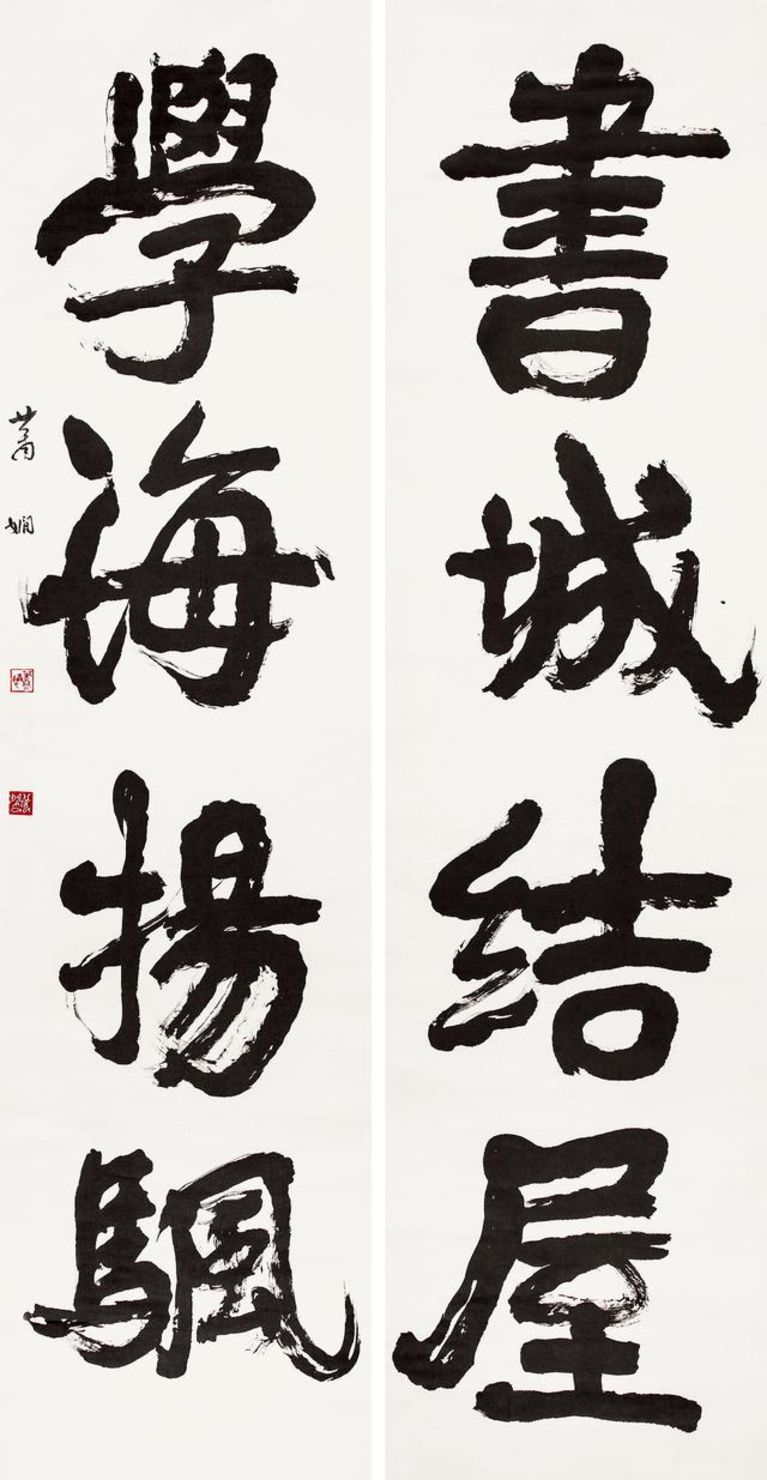 書城結屋
學海揚颿